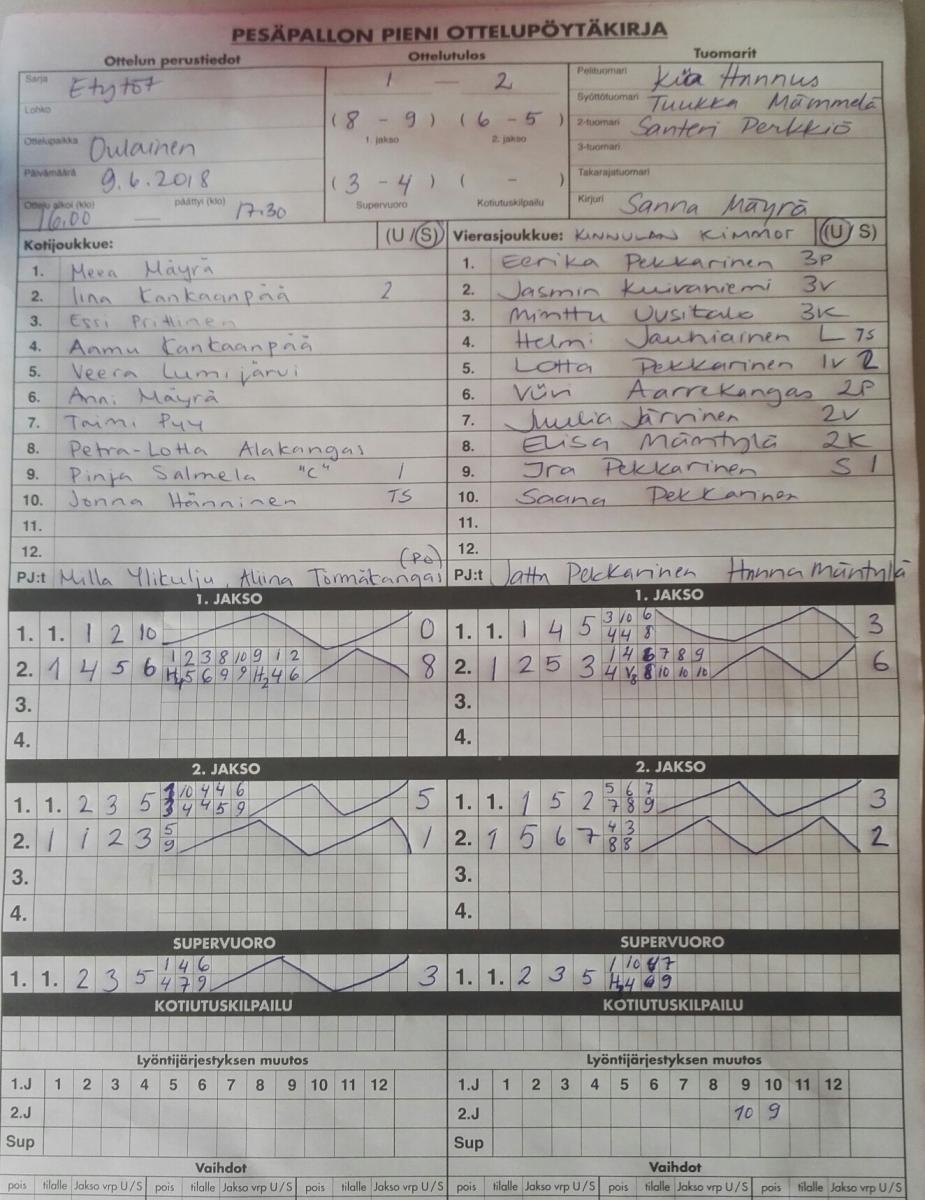 PESÄPALLON PIENI OTTELUPÖYTÄKIRJA
Ottelun perustiedot Ottelutulos Tuomarit
Sarja Etytöt 1 — 2 Pelituomari Kiia Hannus
Lohko Syöttötuomari Tuukka Mämmelä
(8 - 9) (6 - 5) 2-tuomari Santeri Perkkiö
Ottelupaikka Oulainen 1. jakso 2. jakso 3-tuomari
Päivämäärä 9.6.2018 (3 - 4) ( - ) Takarajatuomari
Ottelu alkoi (klo) 16.00 — päättyi (klo) 17.30 Supervuoro Kotiutuskilpailu Kirjuri Sanna Mäyrä
Kotijoukkue: (U / S) Vierasjoukkue: KINNULAN KIMMOT (U / S)
1. Meea Mäyrä 1. Eerika Pekkarinen 3P
2. Iina Kankaanpää 2 2. Jasmin Kuivaniemi 3V
3. Essi Prittinen 3. Minttu Uusitalo 3K
4. Aamu Kankaanpää 4. Helmi Jauhiainen L TS
5. Veera Lumijärvi 5. Lotta Pekkarinen 1V 2
6. Anni Mäyrä 6. Viivi Aarrekangas 2P
7. Taimi Pyy 7. Juulia Järvinen 2V
8. Petra-Lotta Alakangas 8. Elisa Mäntylä 2K
9. Pinja Salmela "C" 1 9. Ira Pekkarinen S 1
10. Jonna Hänninen TS 10. Saana Pekkarinen
11. 11.
12. (PO) 12.
PJ:t Milla Ylikulju, Aliina Törmäkangas PJ:t Jatta Pekkarinen Hanna Mäntylä
1. JAKSO 1. JAKSO
1. 1. 1 2 10 0 1. 1. 1 4 5 3 10 6 3
4 4 8
2. 1 4 5 6 1 2 3 8 10 9 1 2 8 2. 1 2 5 3 1 4 6 7 8 9 6
H4 5 6 9 9 H2 4 6 4 V8 8 10 10 10
3. 3.
4. 4.
2. JAKSO 2. JAKSO
1. 1. 2 3 5 1 10 4 4 6 5 1. 1. 1 5 2 5 6 7 3
3 4 4 5 9 7 8 9
2. 1 1 2 3 5 1 2. 1 5 6 7 4 3 2
9 8 8
3. 3.
4. 4.
SUPERVUORO SUPERVUORO
1. 1. 2 3 5 1 4 6 3 1. 1. 2 3 5 1 10 7
4 7 9 4 9
KOTIUTUSKILPAILU KOTIUTUSKILPAILU
Lyöntijärjestyksen muutos Lyöntijärjestyksen muutos
1.J 1 2 3 4 5 6 7 8 9 10 11 12 1.J 1 2 3 4 5 6 7 8 9 10 11 12
2.J 2.J 10 9
Sup Sup
Vaihdot Vaihdot
pois tilalle Jakso vrp U / S pois tilalle Jakso vrp U / S pois tilalle Jakso vrp U / S pois tilalle Jakso vrp U / S pois tilalle Jakso vrp U / S pois tilalle Jakso vrp U / S